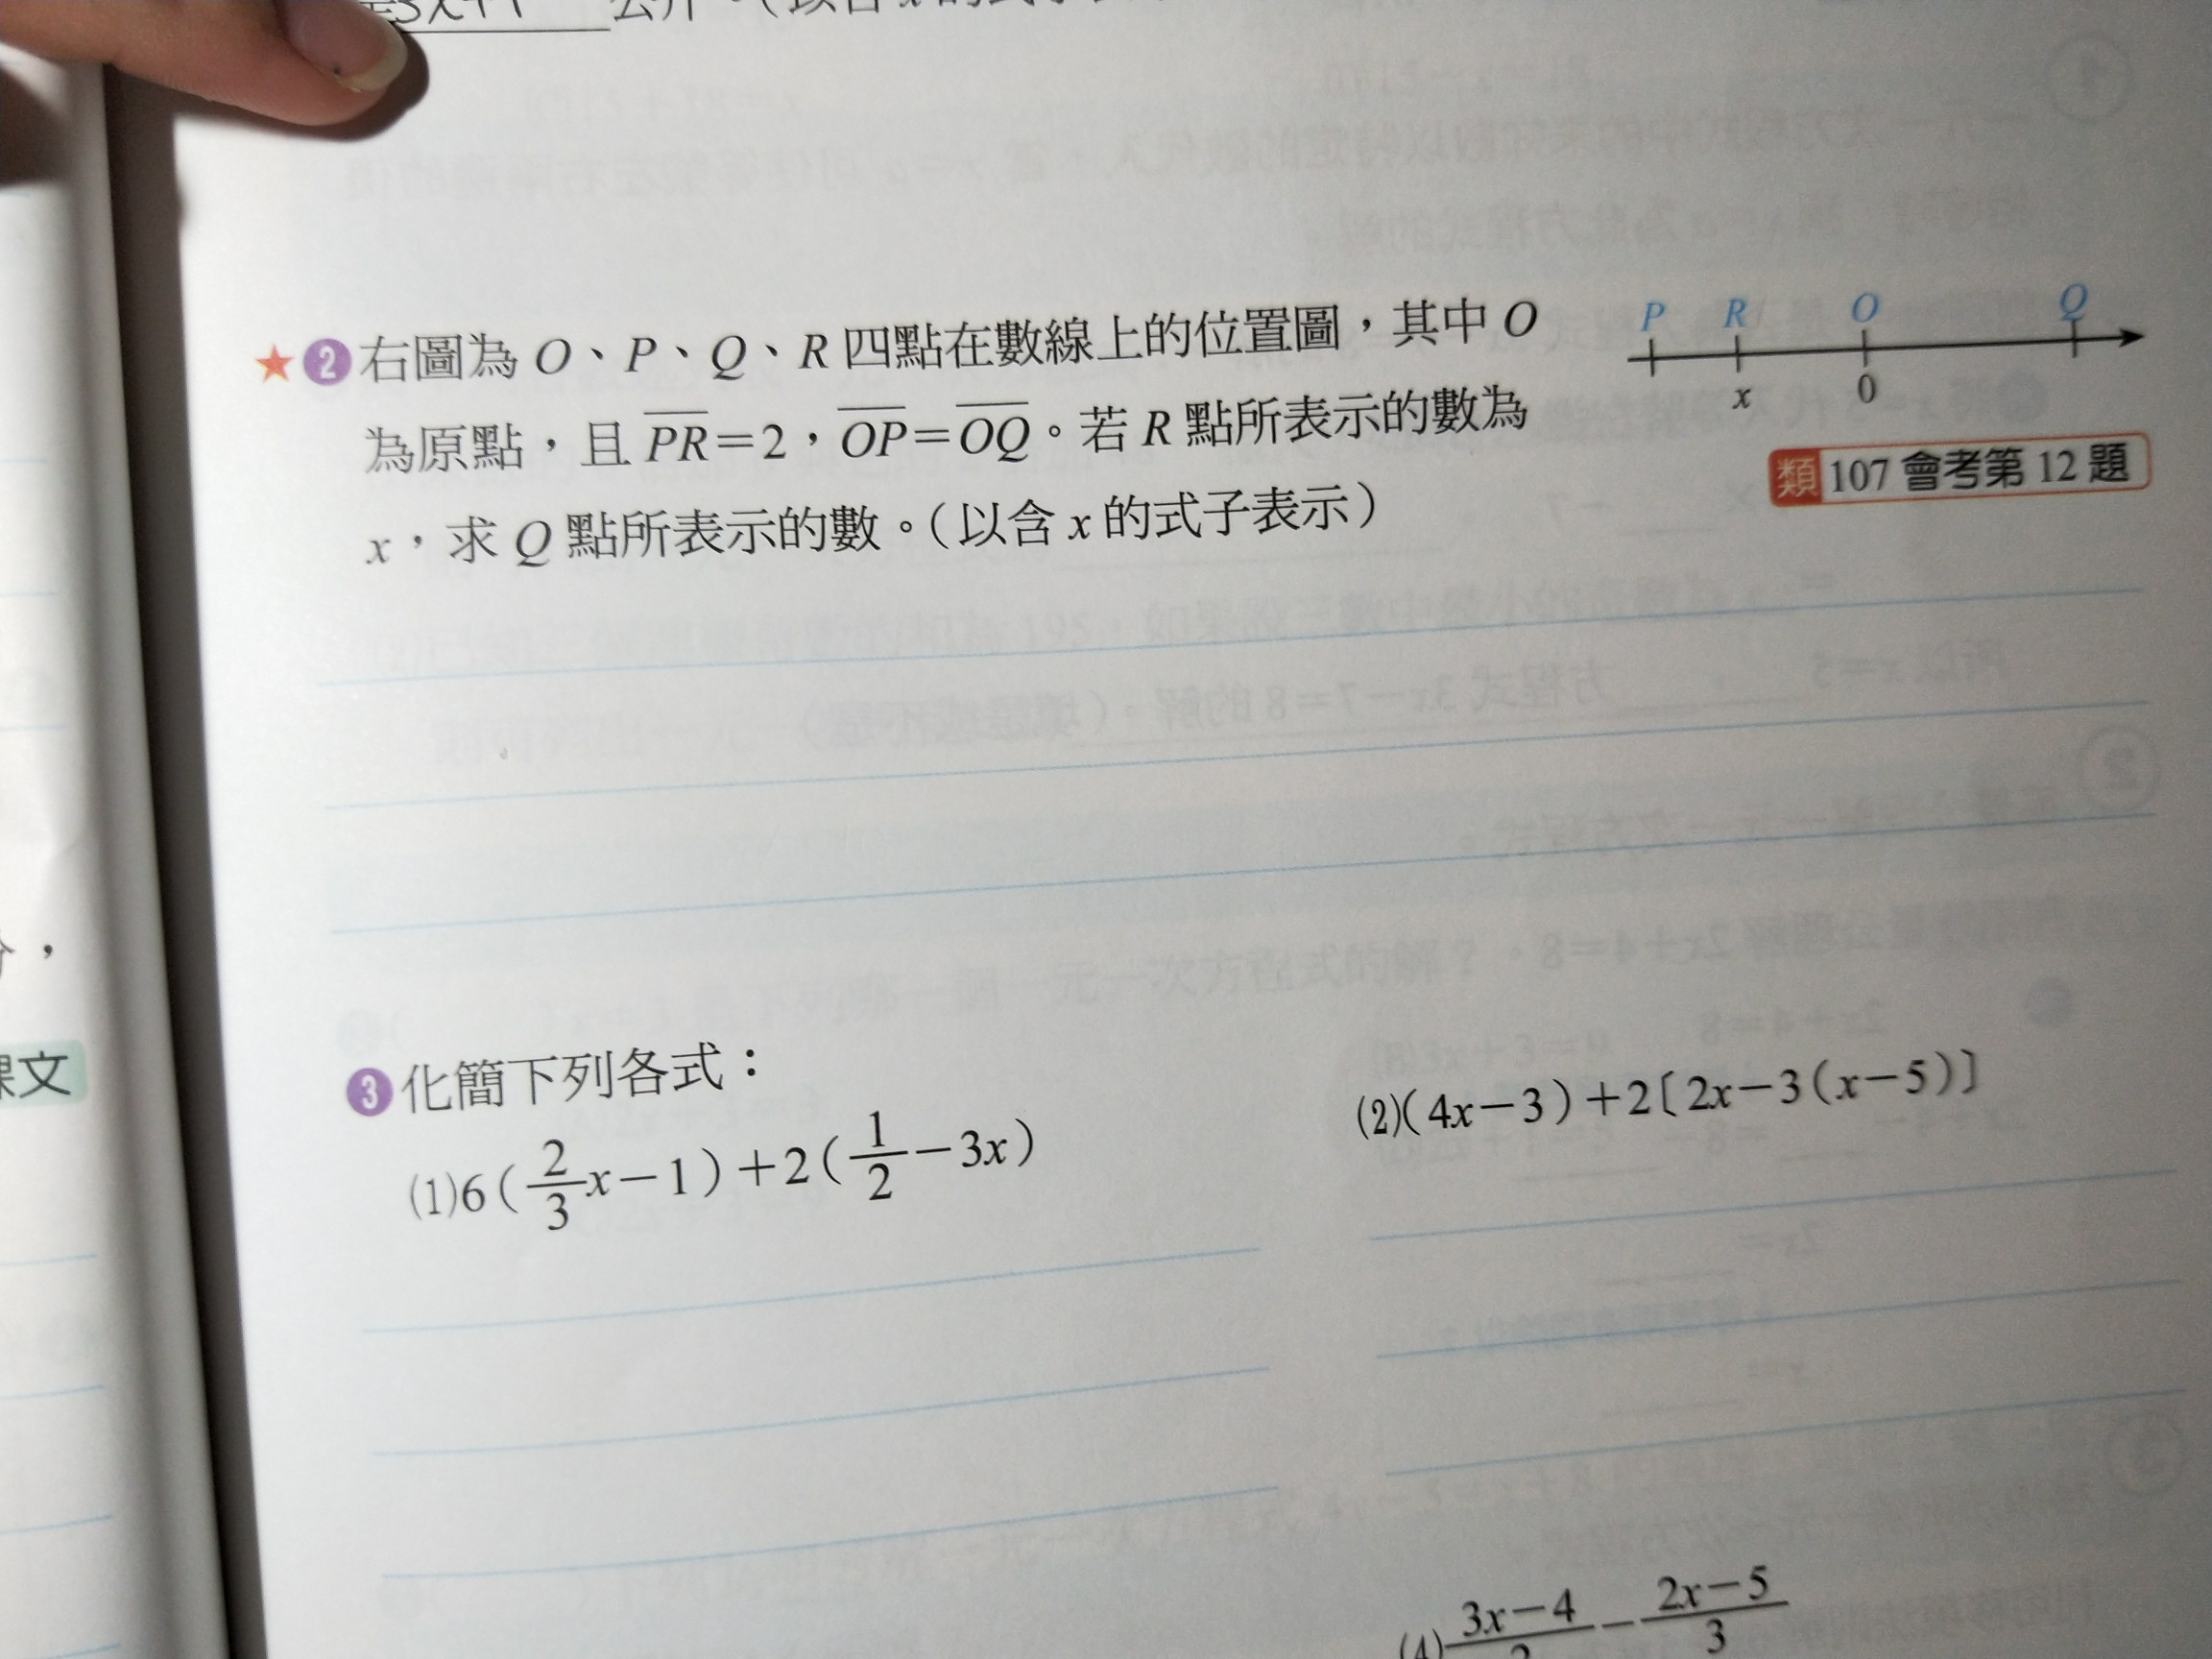 3x+1 公升。(以含 x 的式子表
★ 2 右圖為 O、P、Q、R 四點在數線上的位置圖，其中 O
為原點，且 PR＝2，OP＝OQ。若 R 點所表示的數為
x，求 Q 點所表示的數。(以含 x 的式子表示)
P R O Q
x 0
類 107 會考第 12 題
3 化簡下列各式：
(1) 6(2/3 x－1)＋2(1/2－3x)
(2) (4x－3)＋2〔2x－3(x－5)〕
課文
(4) 3x－4 － 2x－5
3